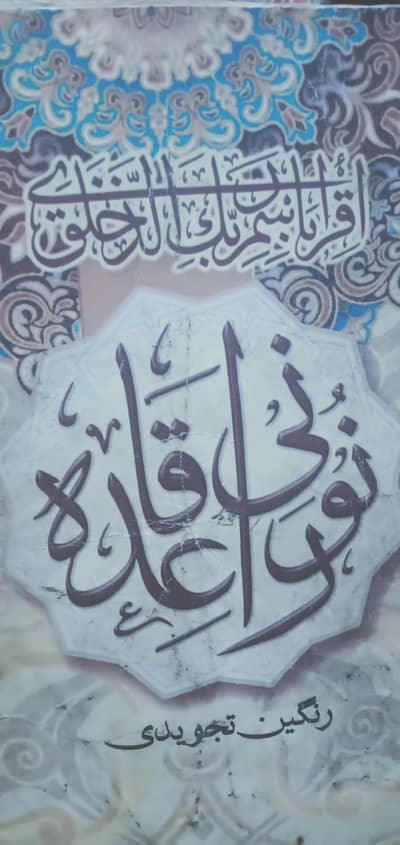 اقْرَأْ بِاسْمِ رَبِّكَ الَّذِي خَلَقَ
نُورانی
قاعدہ
رنگین تجویدی